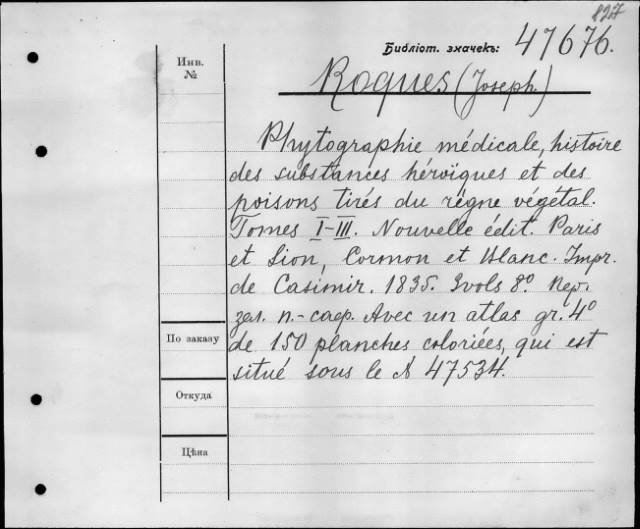 827
Библіот. значекъ: 47676.
Инв. №
Roques (Joseph)
Phytographie médicale, histoire
des substances héroïques et des
poisons tirés du règne végétal.
Tomes I-III. Nouvelle édit. Paris
et Lion, Cormon et Blanc. Impr.
de Casimir. 1835. 3 vols 8º. пер.
зел. п.-саф. Avec un atlas gr. 4º
de 150 planches coloriées, qui est
situé sous le № 47534.
По заказу
Откуда
Цѣна